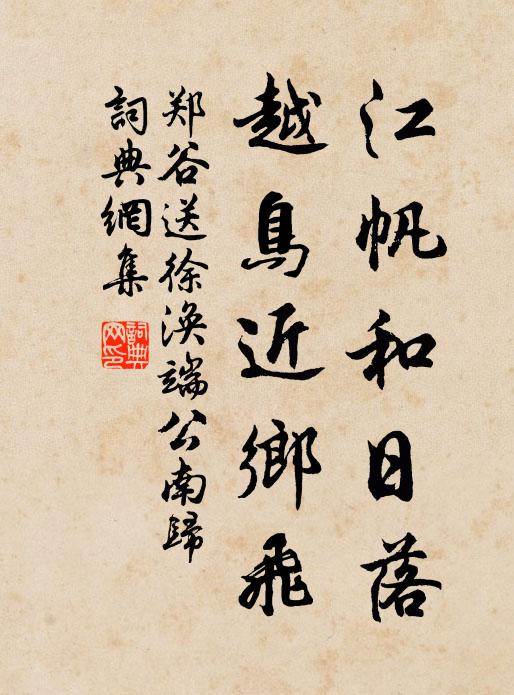 江帆和日落
越鳥近鄉飛
郑谷送徐涣端公南歸
詞典網集
詞典網印